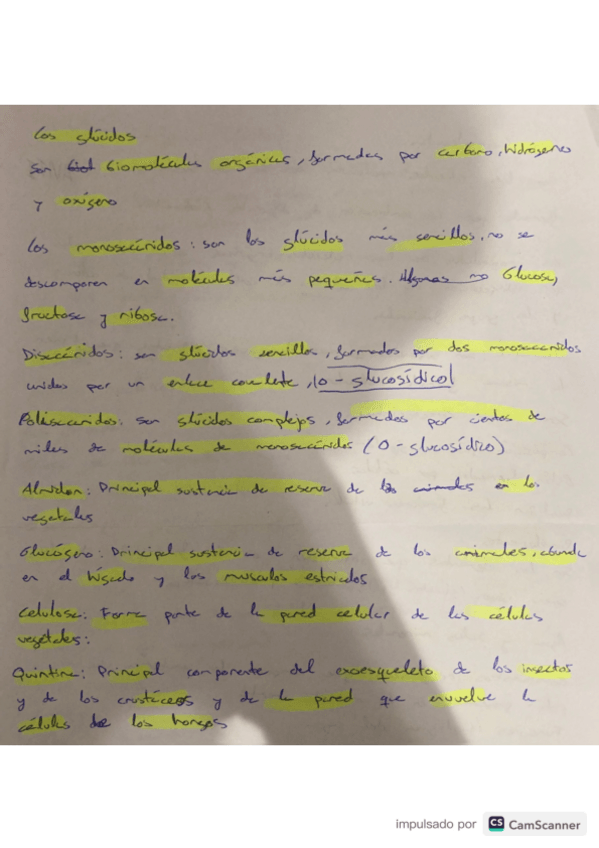 Los glúcidos
son biomoléculas orgánicas, formadas por carbono, hidrógeno
y oxígeno
Los monosacáridos: son los glúcidos más sencillos, no se
descomponen en moléculas más pequeñas. Glucosa,
fructosa y ribosa.
Disacáridos: son glúcidos sencillos, formados por dos monosacáridos
unidos por un enlace covalente, (O-glucosídico)
Polisacáridos: son glúcidos complejos, formados por cientos de
miles de moléculas de monosacáridos (O-glucosídico)
Almidón: Principal sustancia de reserva de los animales en los
vegetales
Glucógeno: Principal sustancia de reserva de los animales, abunda
en el hígado y los musculos estriados
Celulosa: Forma parte de la pared celular de las células
vegetales:
Quintina: Principal componente del exoesqueleto de los insectos
y de los crustáceos y de la pared que envuelve la
células de los hongos
impulsado por CS CamScanner